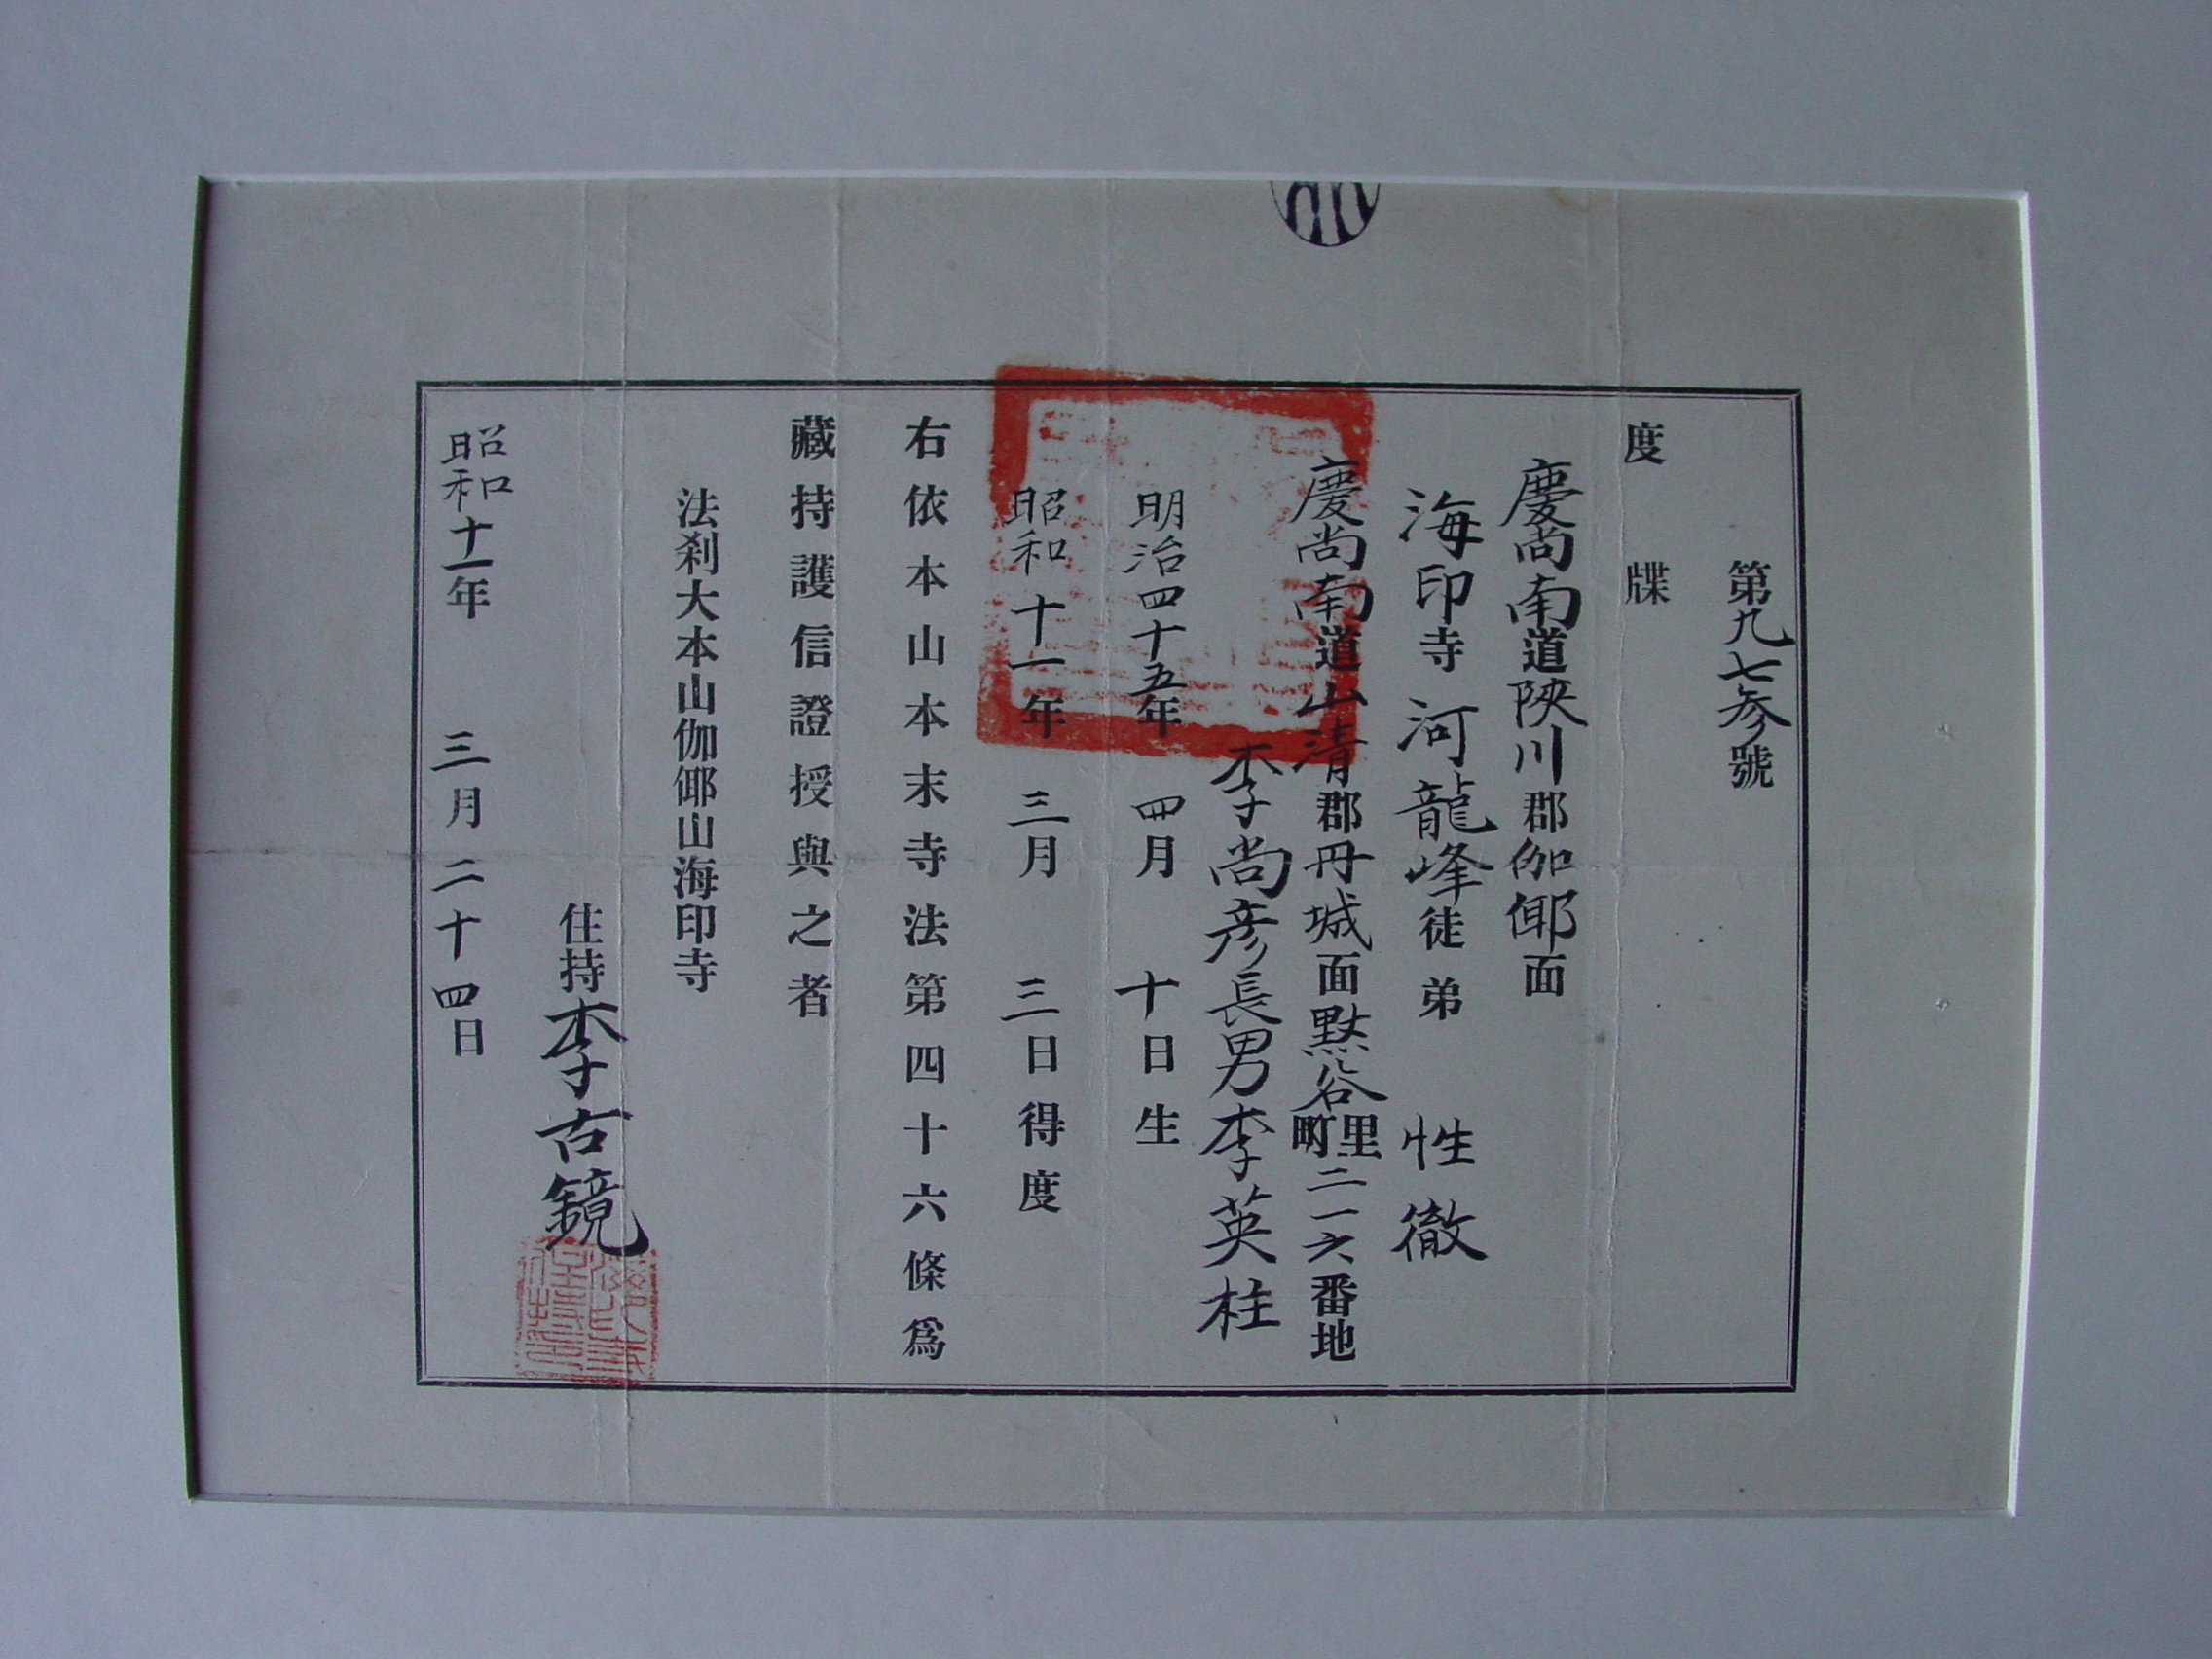 第九七參號
度牒
慶尚南道陜川郡伽倻面
海印寺河龍峰徒弟 性徹
慶尚南道山清郡丹城面默谷里町二一六番地
李尚彦長男李英柱
明治四十五年四月十日生
昭和十一年三月三日得度
右依本山本末寺法第四十六條爲
藏持護信證授與之者
法刹大本山伽倻山海印寺
住持李古鏡
昭和十一年三月二十四日